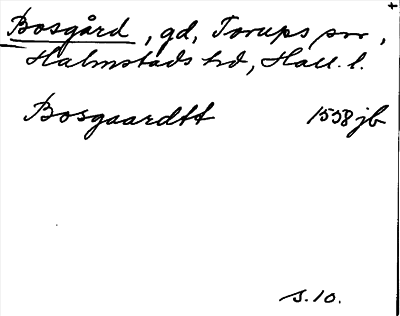 Bosgård, gd, Torups sn,
Halmstads hd, Hall. l.
Bosgaardtt 1558 jb
s. 10.